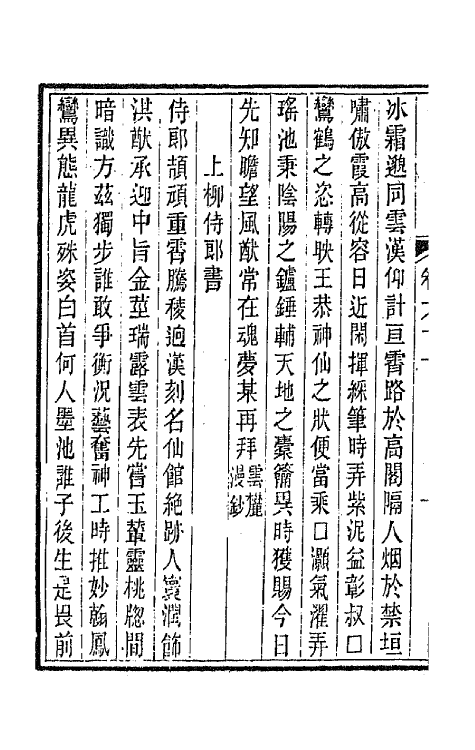 冰霜邈同雲漢仰計亘霄路於高閣隔人烟於禁垣
嘯傲霞高從容日近閑揮綵筆時弄紫泥益彰叔口
鸞鶴之恣轉映王恭神仙之狀便當乘口灝氣濯弄
瑤池秉陰陽之鑪錘輔天地之橐籥異時獲賜今日
先知瞻望風猷常在魂夢某再拜雲麓漫鈔
上柳侍郎書
侍郎頡頏重霄騰稜逈漢刻名仙館絶跡人寰潤飾
洪猷承迎中旨金莖瑞露雲表先嘗玉輦靈桃牎間
暗識方茲獨步誰敢爭衡況藝奮神工時推妙翰鳳
鸞異態龍虎殊姿白首何人墨池誰子後生是畏前